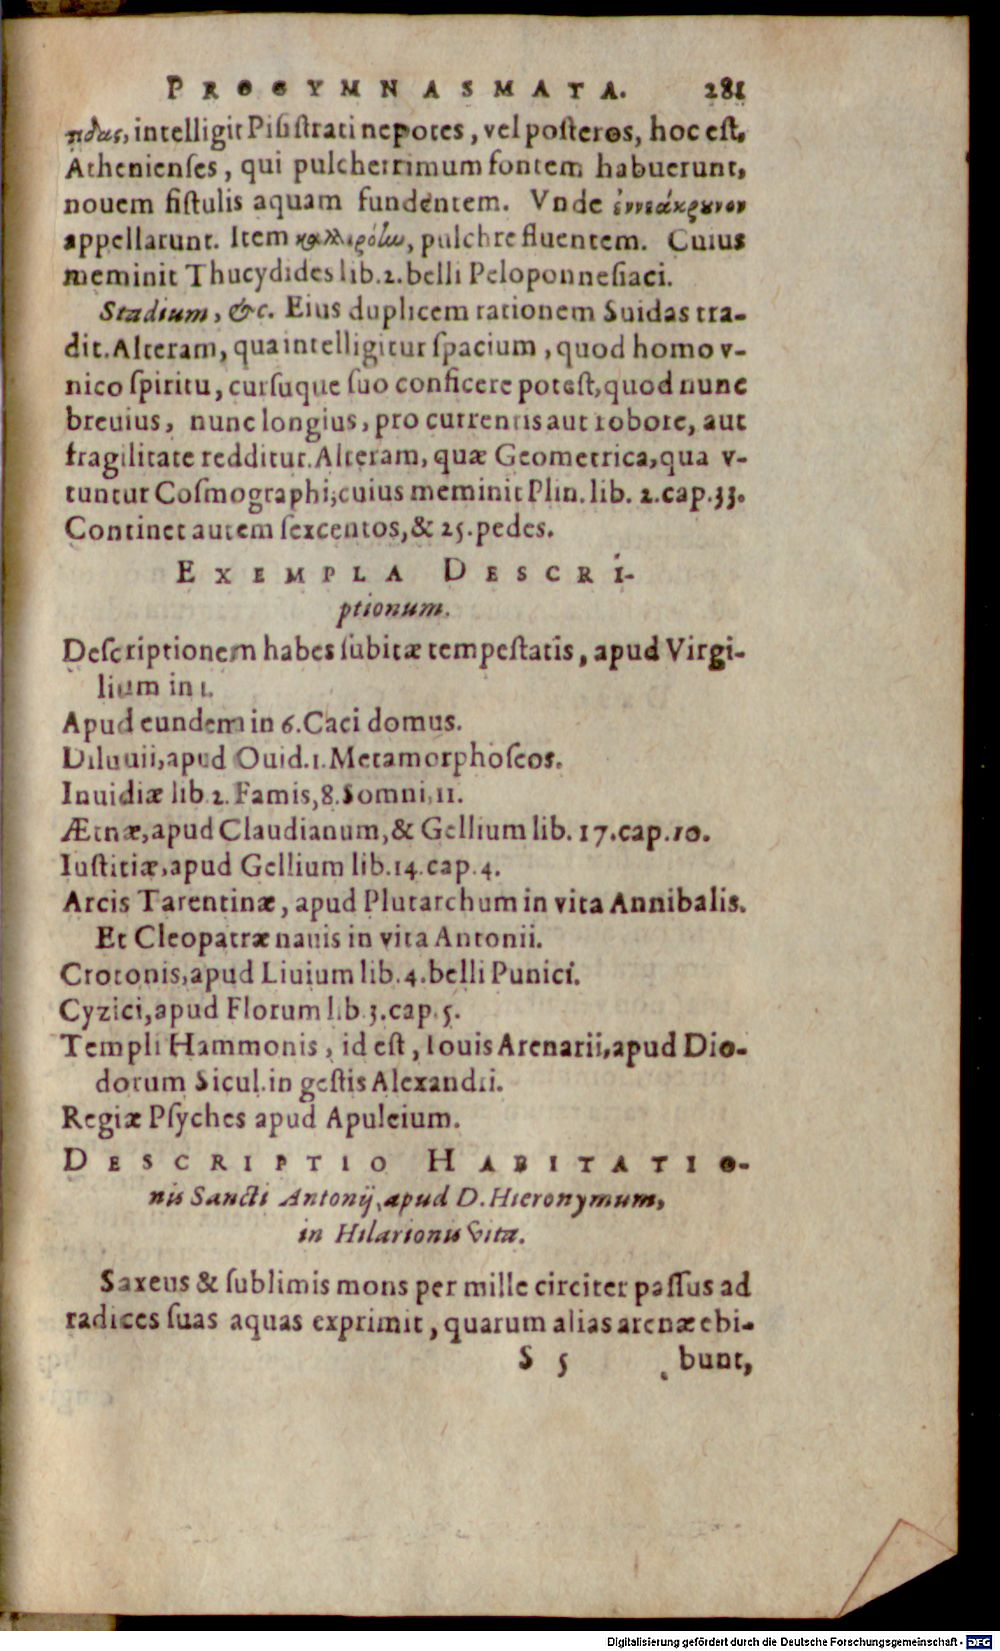 PROGYMNASMATA. 281
πδας, intelligit Pisistrati nepotes, vel posteros, hoc est,
Athenienses, qui pulcherrimum fontem habuerunt,
nouem fistulis aquam fundentem. Vnde ἐννεάκρουνον
appellarunt. Item καλλιρόἰω, pulchre fluentem. Cuius
meminit Thucydides lib. 2. belli Peloponnesiaci.
Stadium, &c. Eius duplicem rationem Suidas tra-
dit. Alteram, qua intelligitur spacium, quod homo v-
nico spiritu, cursuque suo conficere potest, quod nunc
breuius, nunc longius, pro currentis aut robore, aut
fragilitate redditur. Alteram, quæ Geometrica, qua v-
tuntur Cosmographi; cuius meminit Plin. lib. 2. cap. 33.
Continet autem sexcentos, & 25. pedes.
EXEMPLA DESCRI-
ptionum.
Descriptionem habes subitæ tempestatis, apud Virgi-
lium in 1.
Apud eundem in 6. Caci domus.
Diluuii, apud Ouid. 1. Metamorphoseos.
Inuidiæ lib. 2. Famis, 8. Somni, 11.
Ætnæ, apud Claudianum, & Gellium lib. 17. cap. 10.
Iustitiæ, apud Gellium lib. 14. cap. 4.
Arcis Tarentinæ, apud Plutarchum in vita Annibalis.
Et Cleopatræ nauis in vita Antonii.
Crotonis, apud Liuium lib. 4. belli Punici.
Cyzici, apud Florum lib. 3. cap. 5.
Templi Hammonis, id est, Iouis Arenarii, apud Dio-
dorum Sicul. in gestis Alexandri.
Regiæ Psyches apud Apuleium.
DESCRIPTIO HABITATIO-
nis Sancti Antonij, apud D. Hieronymum,
in Hilarionis vita.
Saxeus & sublimis mons per mille circiter passus ad
radices suas aquas exprimit, quarum alias arenæ ebi-
S 5 bunt,
Digitalisierung gefördert durch die Deutsche Forschungsgemeinschaft - DFG